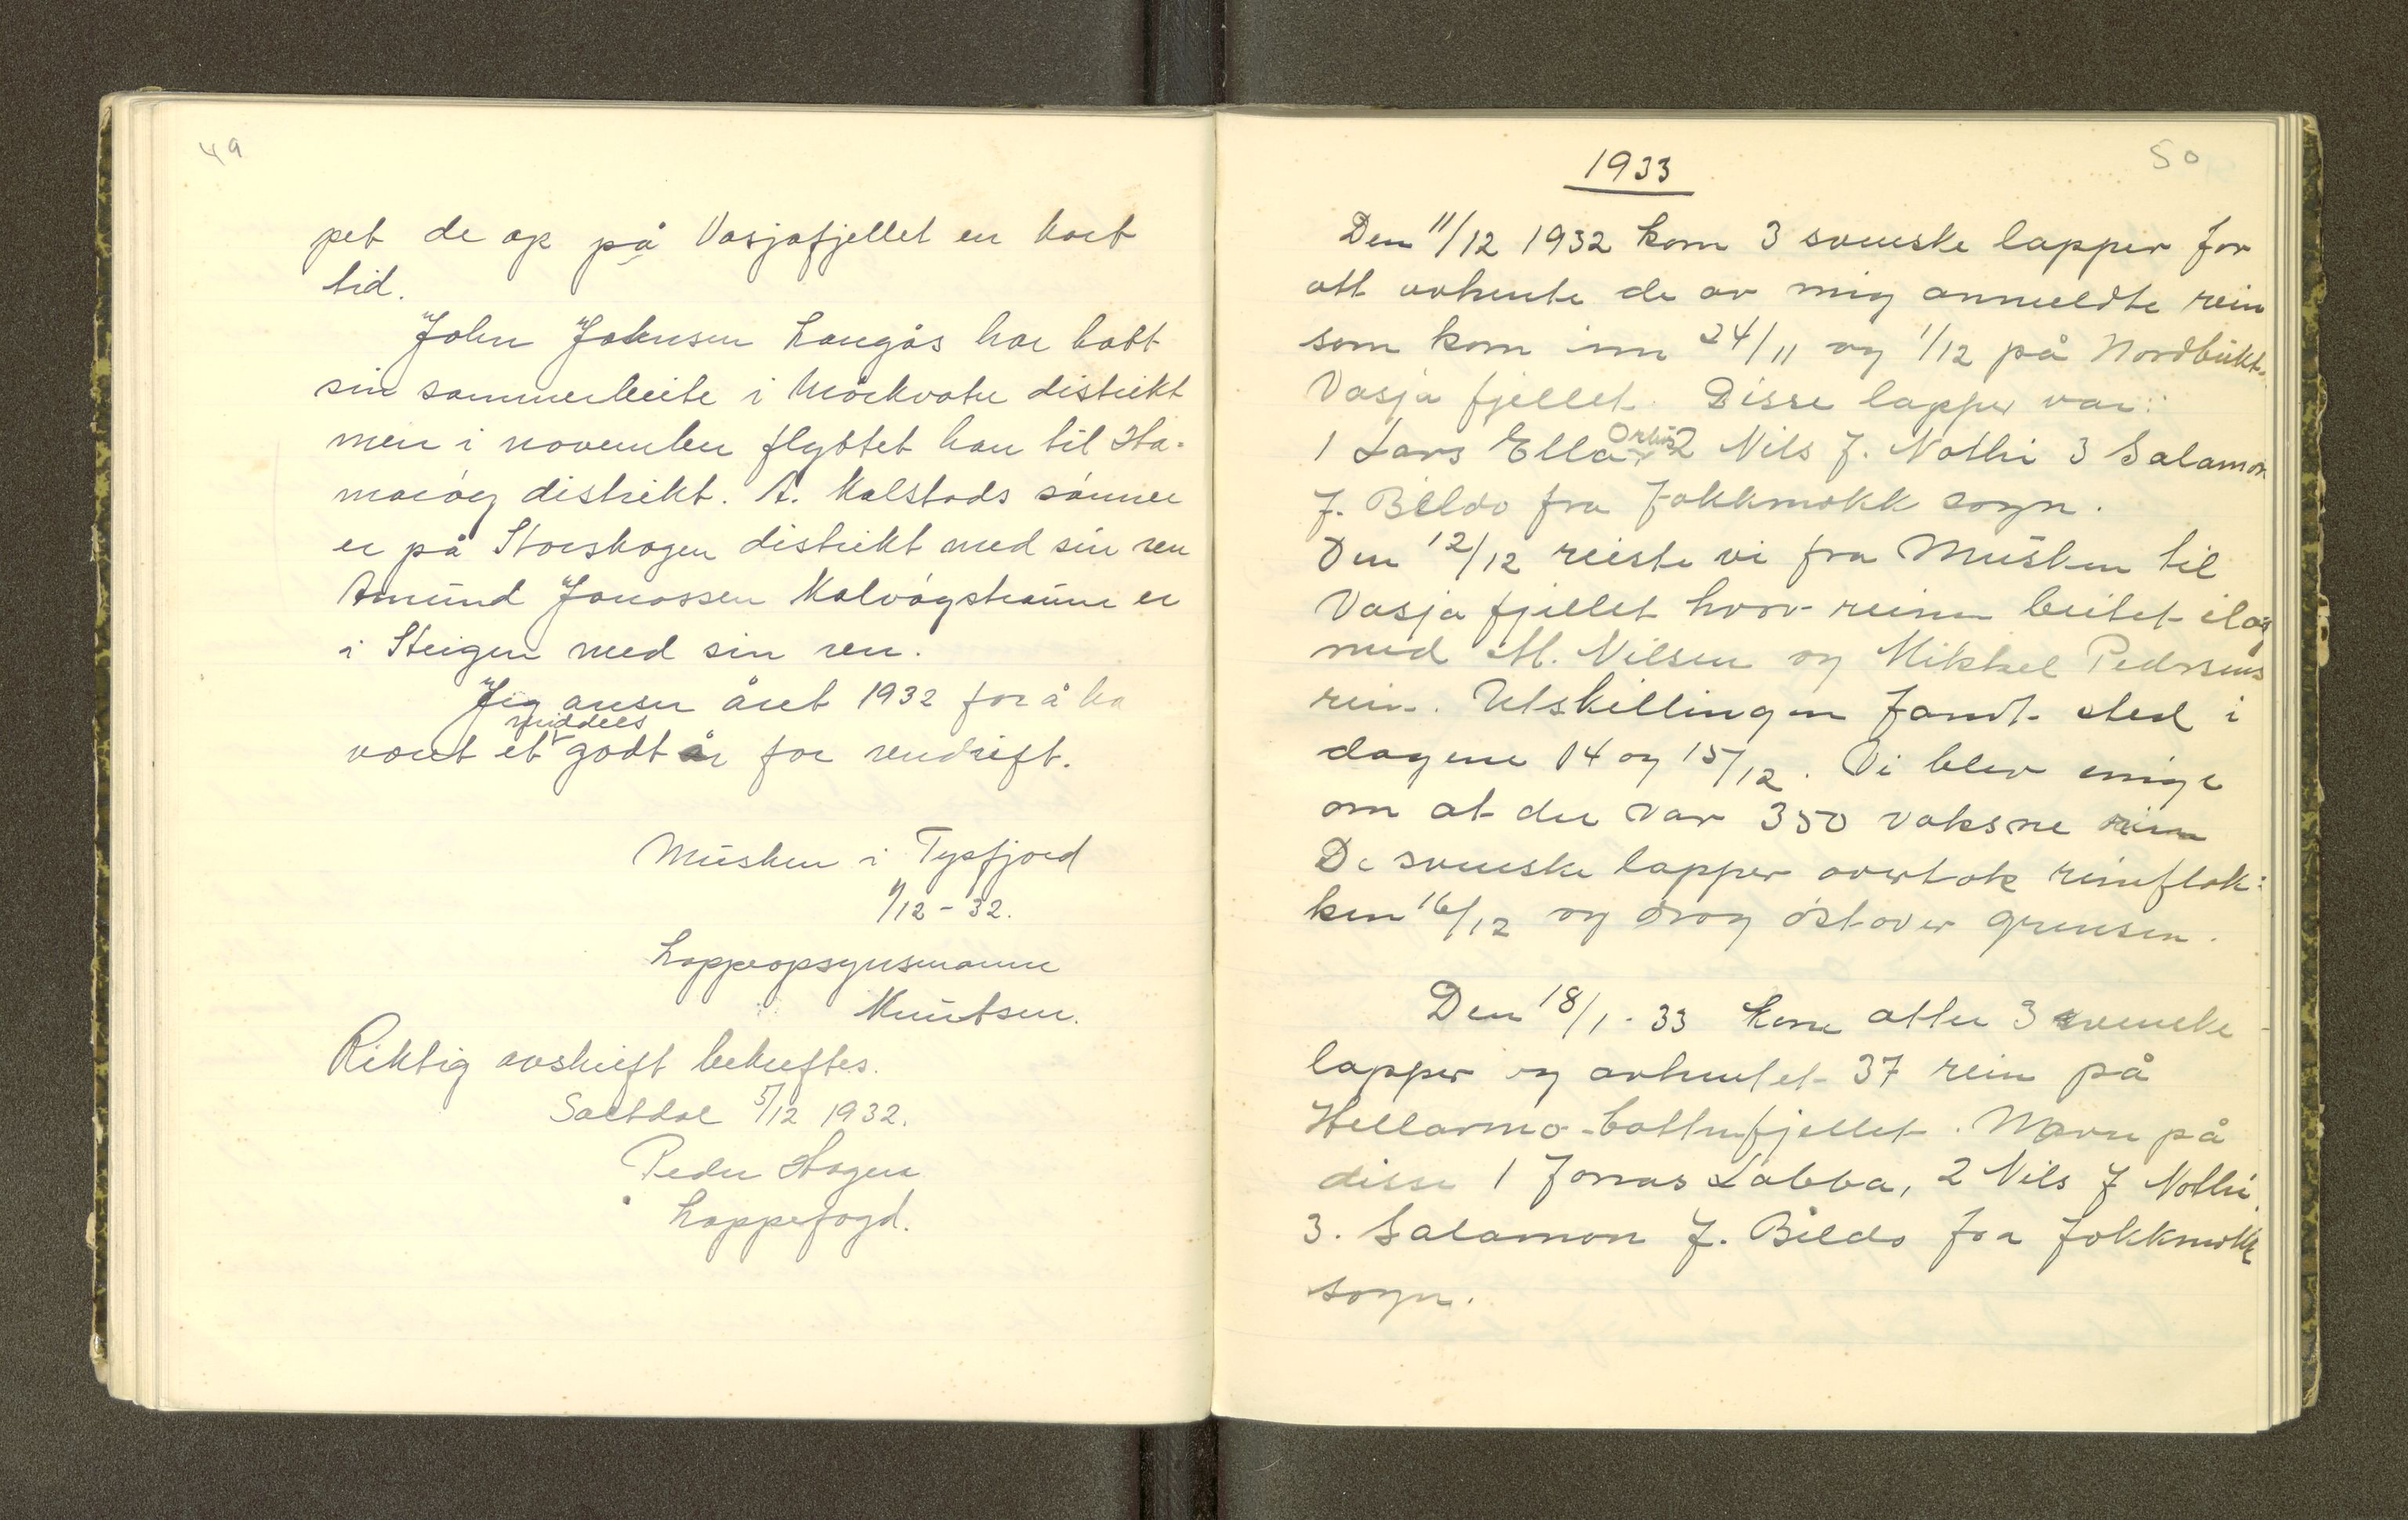 49
pet de op på Vasjafjellet en kort
tid.
John Johnsen Langås har hatt
sin sommerbeite i Mörkvatn distrikt
men i november flyttet han til Ha-
maröy distrikt. A. Kalstads sönner
er på Storskogen distrikt med sin ren
Amund Jonassen Kalvågstraumen er
i Steigen med sin ren.
Jeg anser året 1932 for å ha
middels
vært et godt år for rendrift.
Musken i Tysfjord
1/12-32.
Lappeopsynsmann
Knutsen.
Riktig avskrift bekreftes.
Saltdal 5/12 1932.
Peder Hagen
Lappefogd.
50
1933
Den 11/12 1932 kom 3 svenske lapper for
att avhente de av mig anmeldte rein
som kom inn 24/11 og 1/12 på Nordbukt-
Vasja fjellet. Disse lapper var:
1 Lars Ella 2 Nils J. Nothi 3 Salamon
J. Bildo fra Jokkmokk sogn.
Den 12/12 reiste vi fra Musken til
Vasja fjellet hvor reinen beitet ilag
med M. Nilsen og Mikkel Pedersens
rein. Utskillingen fandt sted i
dagene 14 og 15/12. Vi blev enige
om at der var 350 voksne rein
De svenske lapper overtok reinflok-
ken 16/12 og drog östover grensen.
Den 18/1-33 kom atter 3 svenske
lapper og avhentet 37 rein på
Hellarmo-bottnfjellet. Navn på
disse 1 Jonas Labba, 2 Nils J Nothi
3. Salamon J. Bildo fra Jokkmokk
sogn.